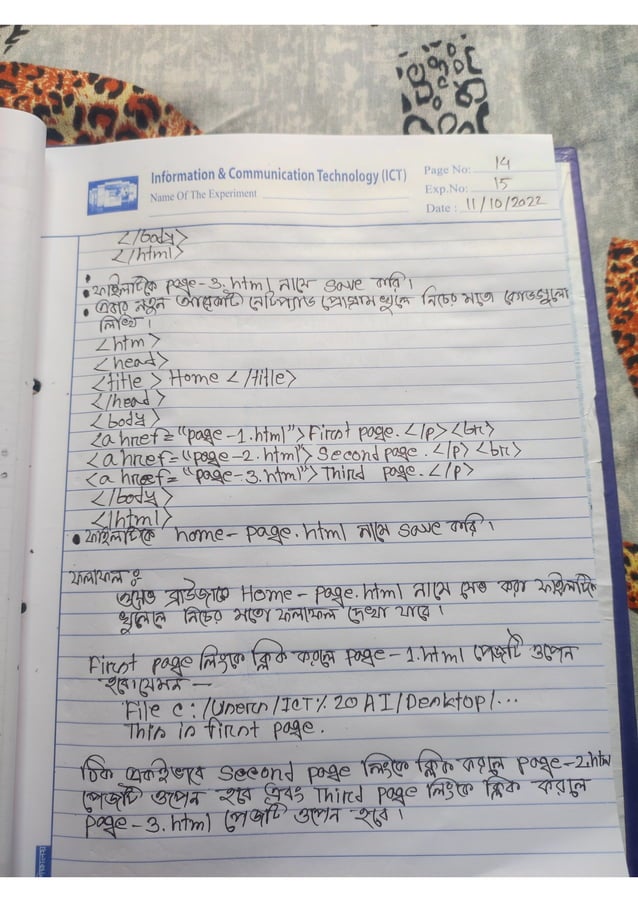 Information & Communication Technology (ICT)
Name Of The Experiment
Page No: 14
Exp.No: 15
Date : 11/10/2022
</body>
</html>
• ফাইলটিকে page-3.html নামে save করি।
• এবার নতুন আরেকটি নোটপ্যাড প্রোগ্রাম খুলে নিচের মতো কোডগুলো
লিখি।
<htm>
<head>
<title> Home </title>
</head>
<body>
<a href="page-1.html"> First page. </p> <br>
<a href="page-2.html"> Second page. </p> <br>
<a href="page-3.html"> Third page. </p>
</body>
</html>
• ফাইলটিকে home-page.html নামে save করি।
ফলাফল :
ওয়েভ ব্রাউজারে Home-page.html নামে সেভ করা ফাইলটিকে
খুললে নিচের মতো ফলাফল দেখা যাবে।
First page লিংকে ক্লিক করলে page-1.html পেজটি ওপেন
হবে। যেমন —
File c:/Users/ICT%20AI/Desktop/...
This is first page.
ঠিক একইভাবে Second page লিংকে ক্লিক করলে page-2.htm
পেজটি ওপেন হবে এবং Third page লিংকে ক্লিক করলে
page-3.html পেজটি ওপেন হবে।